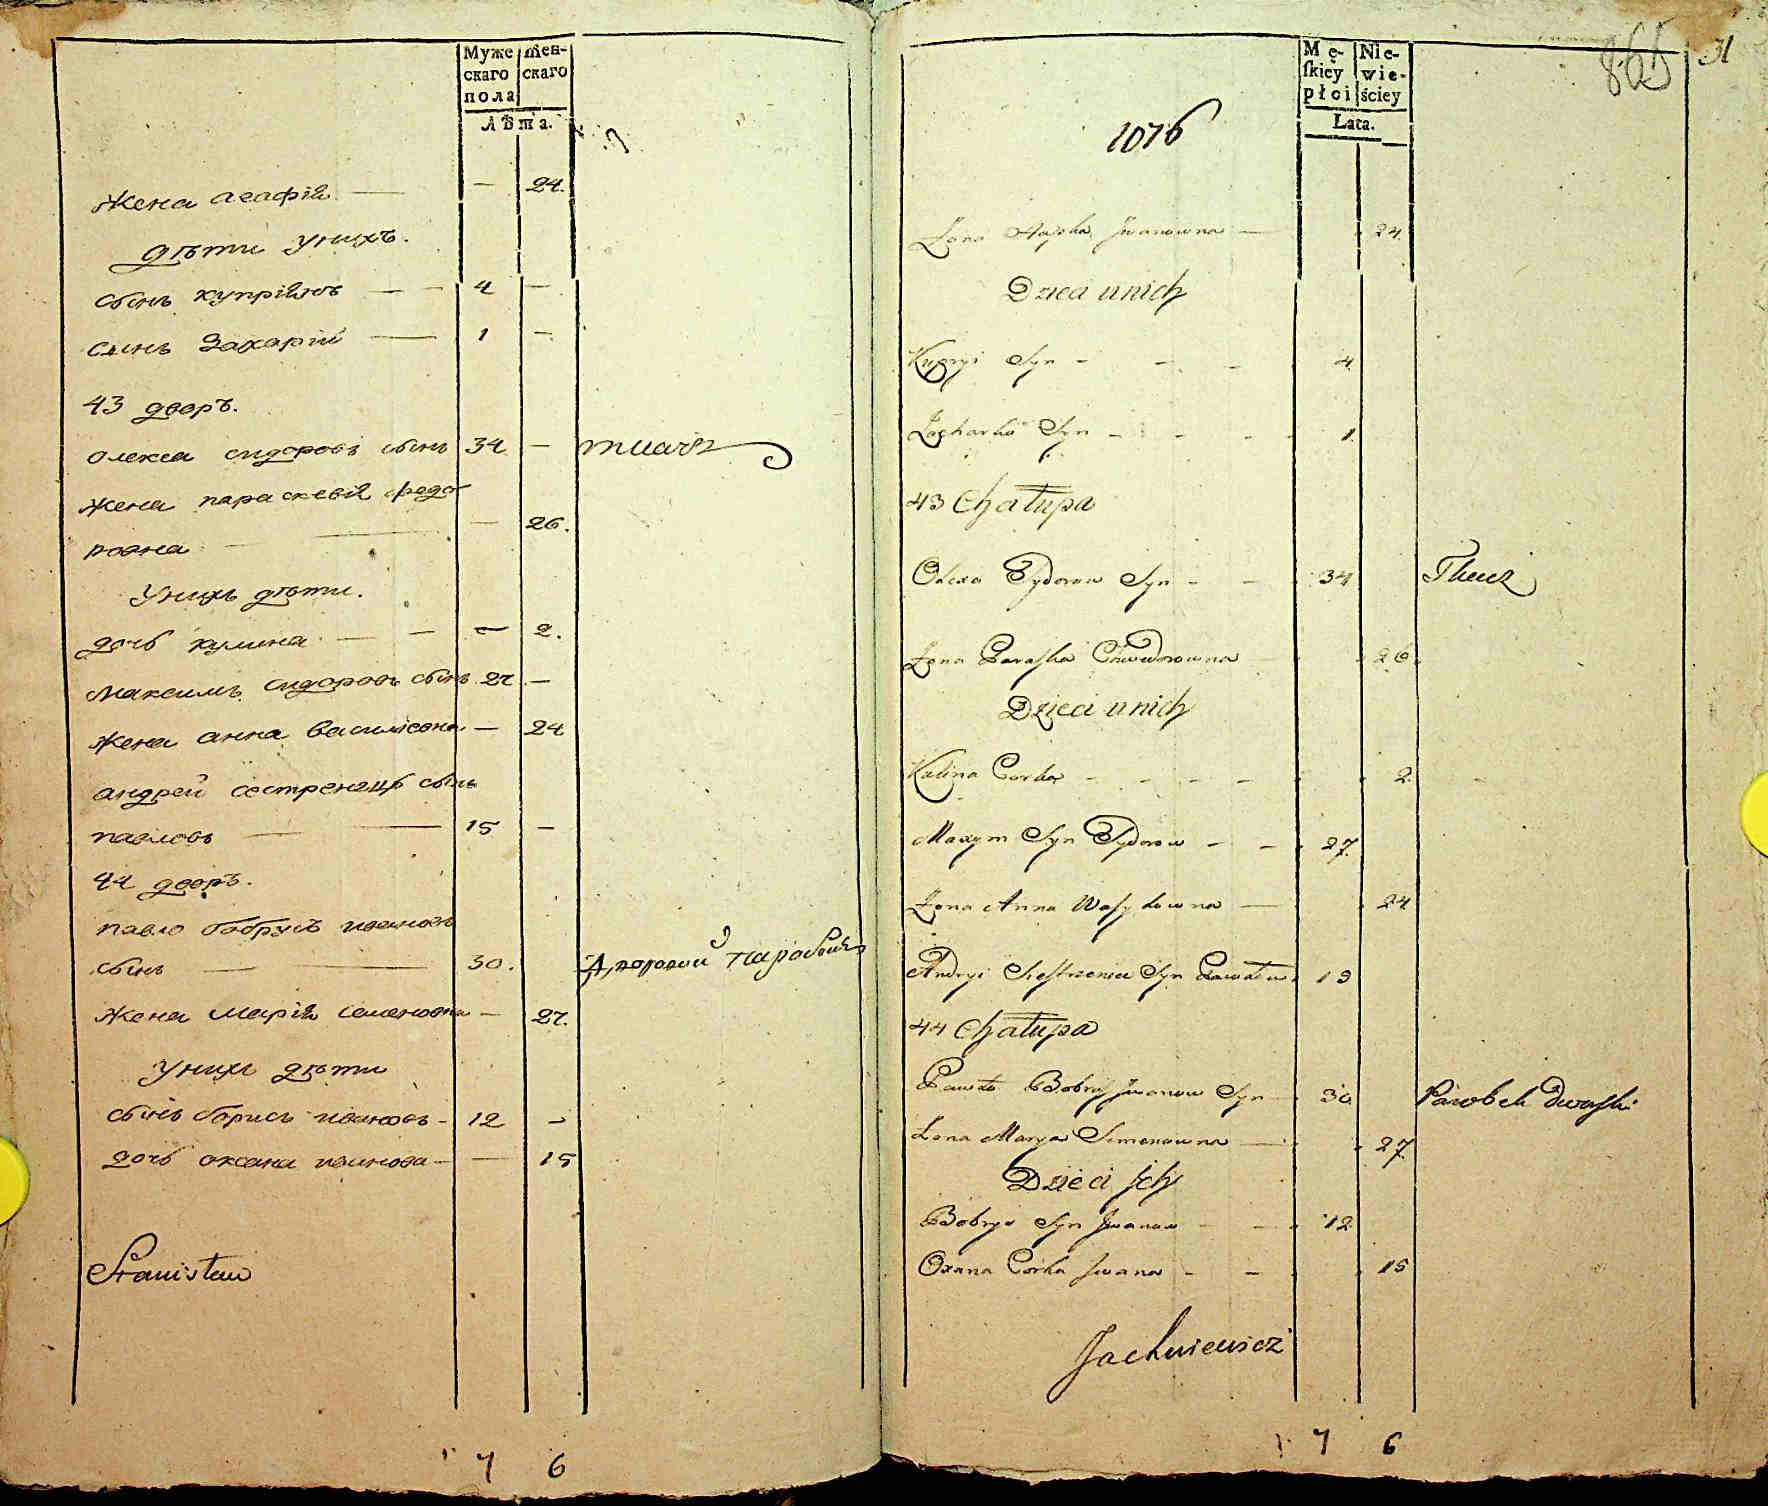 Муже
скаго
пола
Жен-
скаго
Лѣта.
Жена агафія — — 24.
дѣти унихъ.
сынъ купріянъ — — 4 —
сынъ Захарій — 1 —
43 дворъ.
олекса сидоровъ сынъ 34 — ткачь
жена параскевія федо
ровна — — — 26.
унихъ дѣти.
дочь кулина — — — 2.
максимъ сидоровъ сынъ 27 —
жена анна василіовна — 24
андрей сестренецъ сынъ
павловъ — — 15 —
44 дворъ.
павло бобрусь ивановъ
сынъ — — 30. Дворовой паробокъ
жена марія семеновна — 27.
унихъ дѣти
сынъ борисъ ивановъ — 12 —
дочь оксана иванова — — 15
Stanisław
7 6
865
31
Mę-
skiey
płci
Nie-
wie-
ściey
Lata.
1076
Żona Hapka Jwanowna — 24.
Dzieci unich
Kupryi Syn - - - 4
Zacharko Syn - - - - 1.
43 Chałupa
Olexa Sydorow Syn - - 34 Tkacz
Żona Paraska Chwedorowna 26.
Dzieci unich
Kalina Corka - - - - 2.
Maxym Syn Sydorow - - 27.
Żona Anna Wasylowna — 24
Andryi Siestrzeniec Syn Pawłow 15
44 Chałupa
Pawło Bobruś Jwanow Syn - 30 Parobek Dworski
Żona Marya Simonowna — 27.
Dzieci Jch
Bobrys Syn Jwanow - - 12
Oxana Corka Jwana - - 15
Jachniewicz
7 6